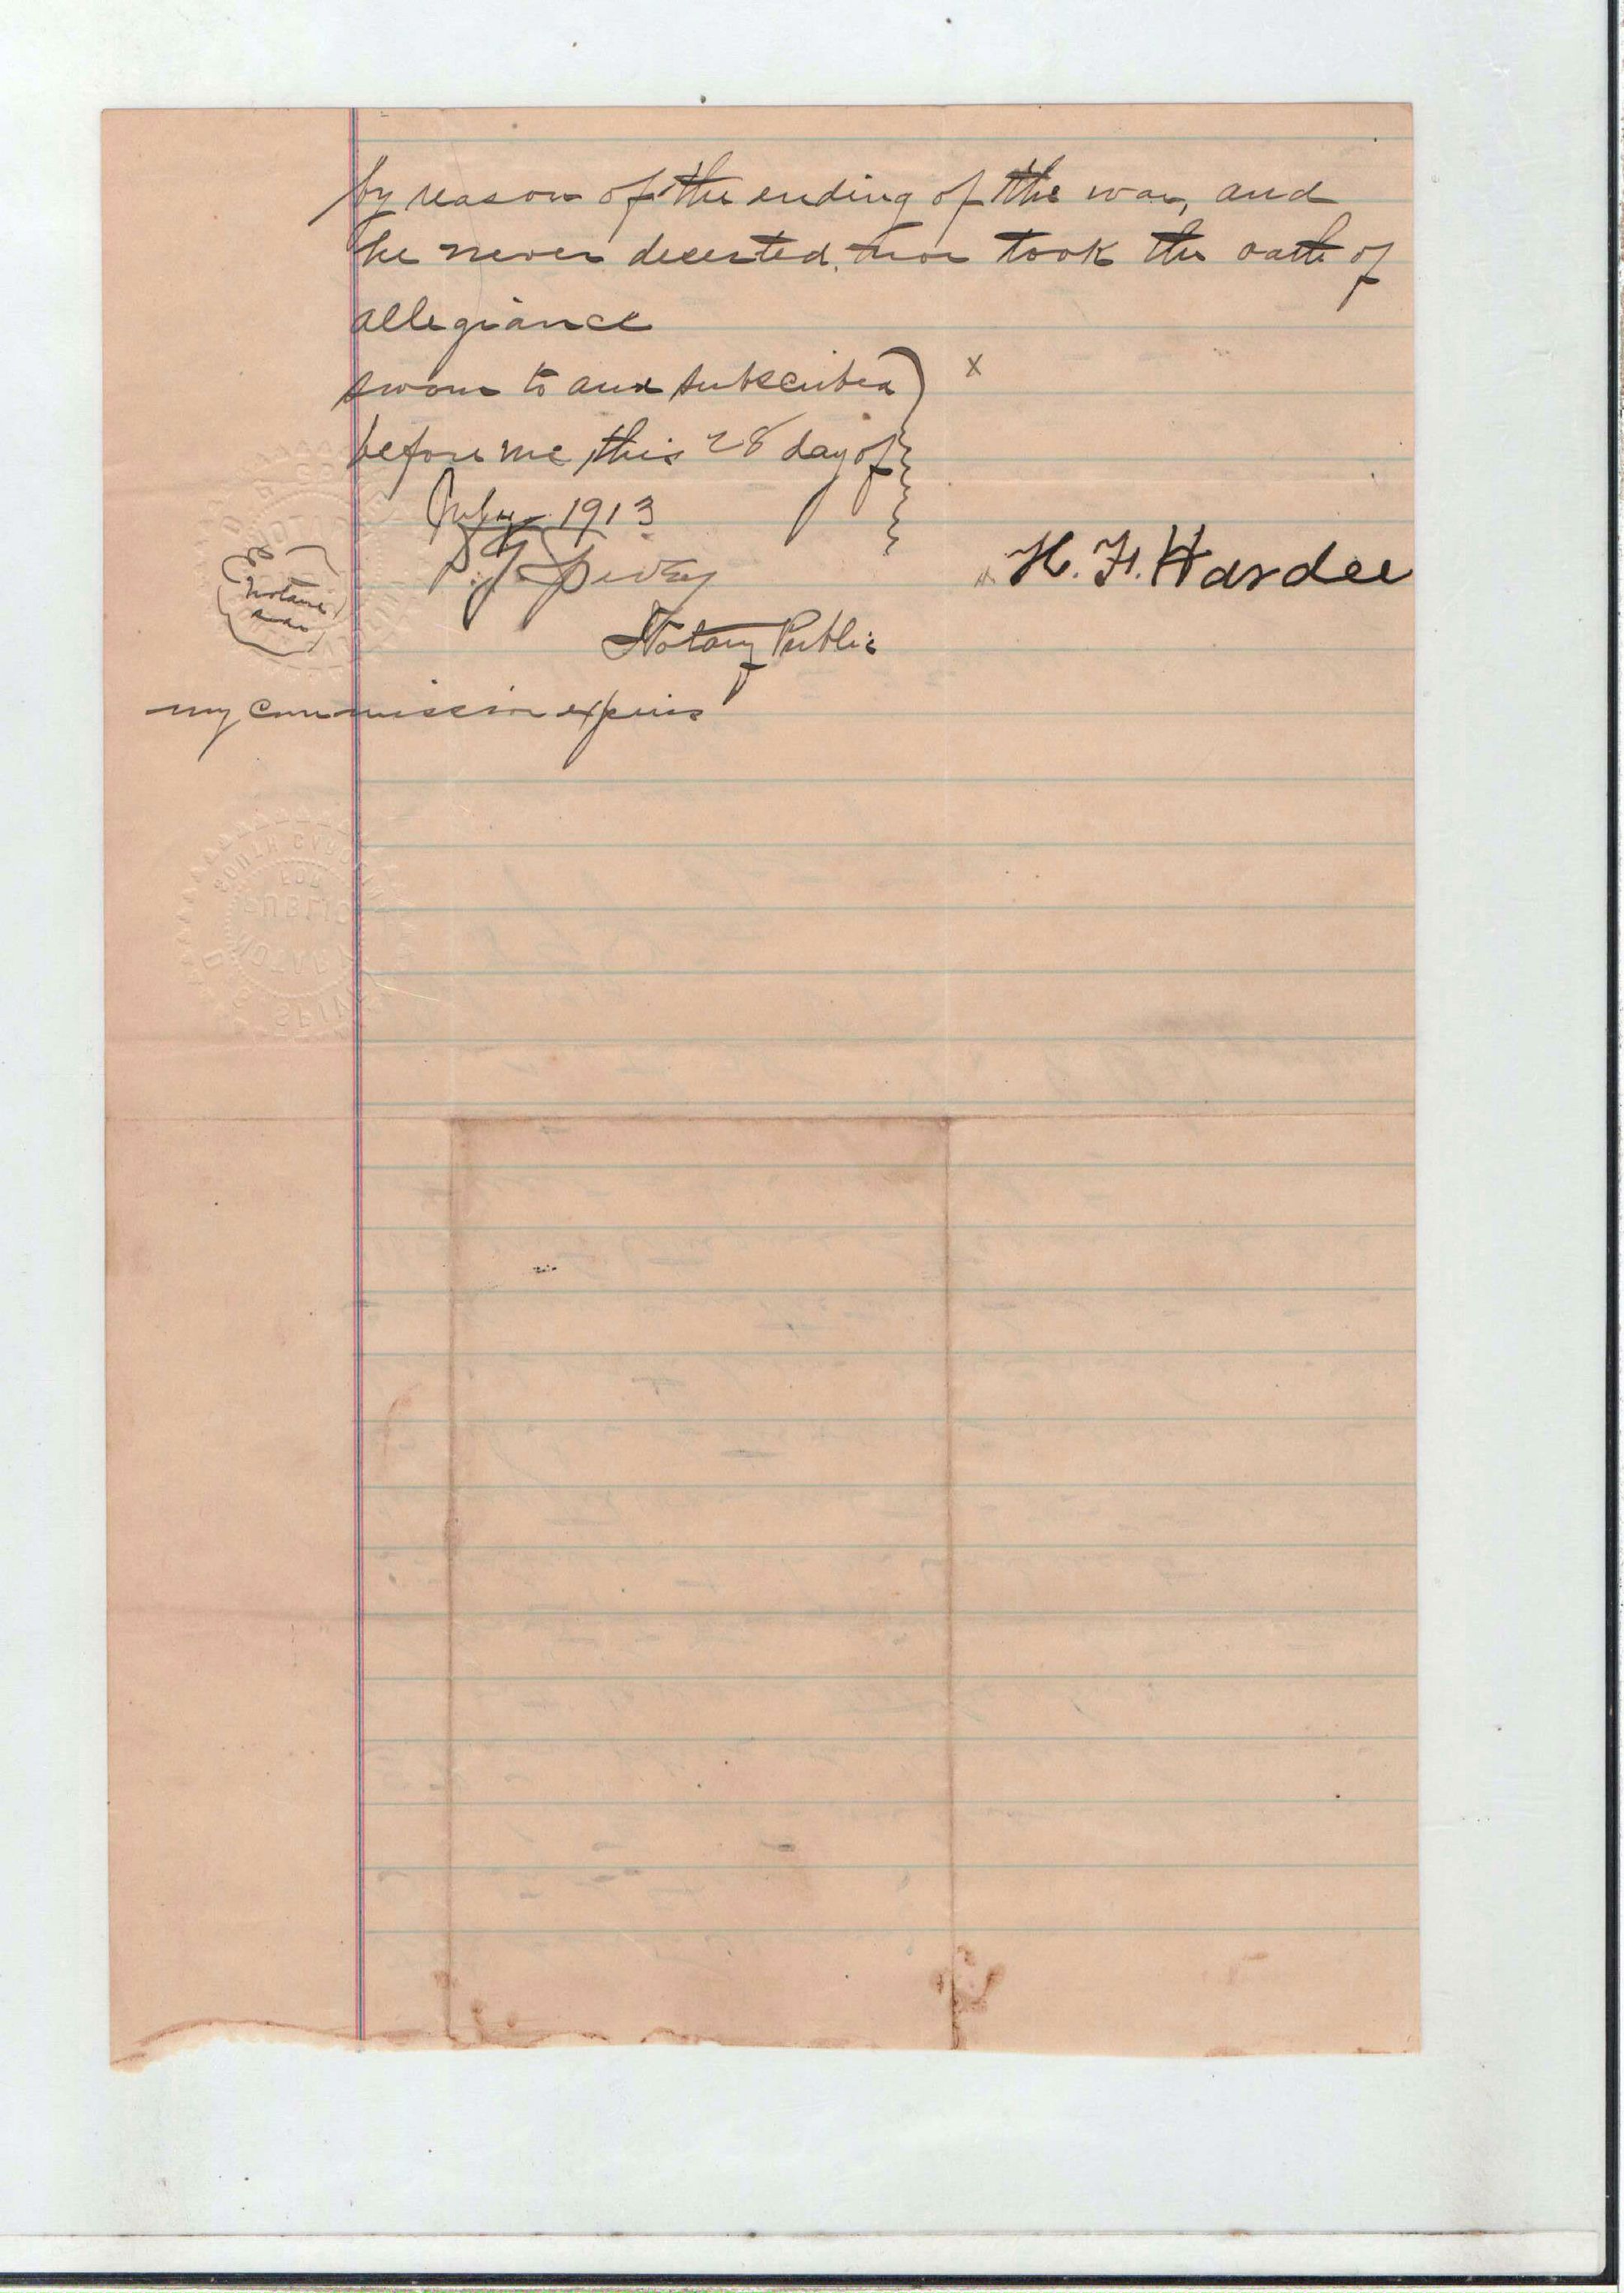 by reason of the ending of the war, and
he never deserted, nor took the oath of
allegiance
sworn to and subscribed
before me, this 28 day of
July 1913
x
H. H. Hardee
Spivey
Notary Public
my commission expires
SOUTH CAROLINA
FOR
PUBLIC
NOTARY
SPIVEY